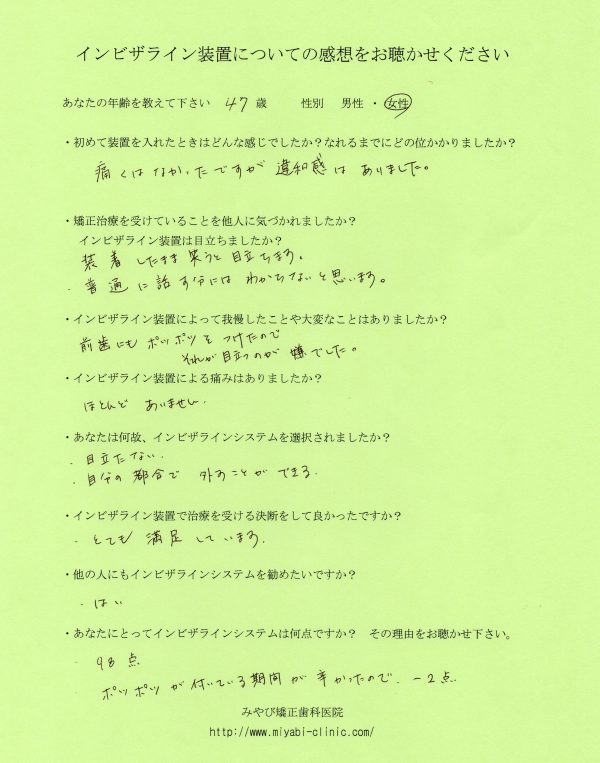 インビザライン装置についての感想をお聴かせください
あなたの年齢を教えて下さい 47 歳 性別 男性 ・ 女性
・初めて装置を入れたときはどんな感じでしたか？なれるまでにどの位かかりましたか？
痛くはなかったですが 違和感は ありました。
・矯正治療を受けていることを他人に気づかれましたか？
インビザライン装置は目立ちましたか？
装着したまま笑うと目立ちます。
・普通に話す分には わからないと思います。
・インビザライン装置によって我慢したことや大変なことはありましたか？
前歯にもポツポツをつけたので
それが目立つのが 嫌でした。
・インビザライン装置による痛みはありましたか？
ほとんど ありません.
・あなたは何故、インビザラインシステムを選択されましたか？
・目立たない.
・自分の都合で 外すことができる.
・インビザライン装置で治療を受ける決断をして良かったですか？
・とても 満足しています.
・他の人にもインビザラインシステムを勧めたいですか？
・はい
・あなたにとってインビザラインシステムは何点ですか？ その理由をお聴かせ下さい。
・98点
ポツポツが付いている期間が辛かったので. －2点
みやび矯正歯科医院
http://www.miyabi-clinic.com/